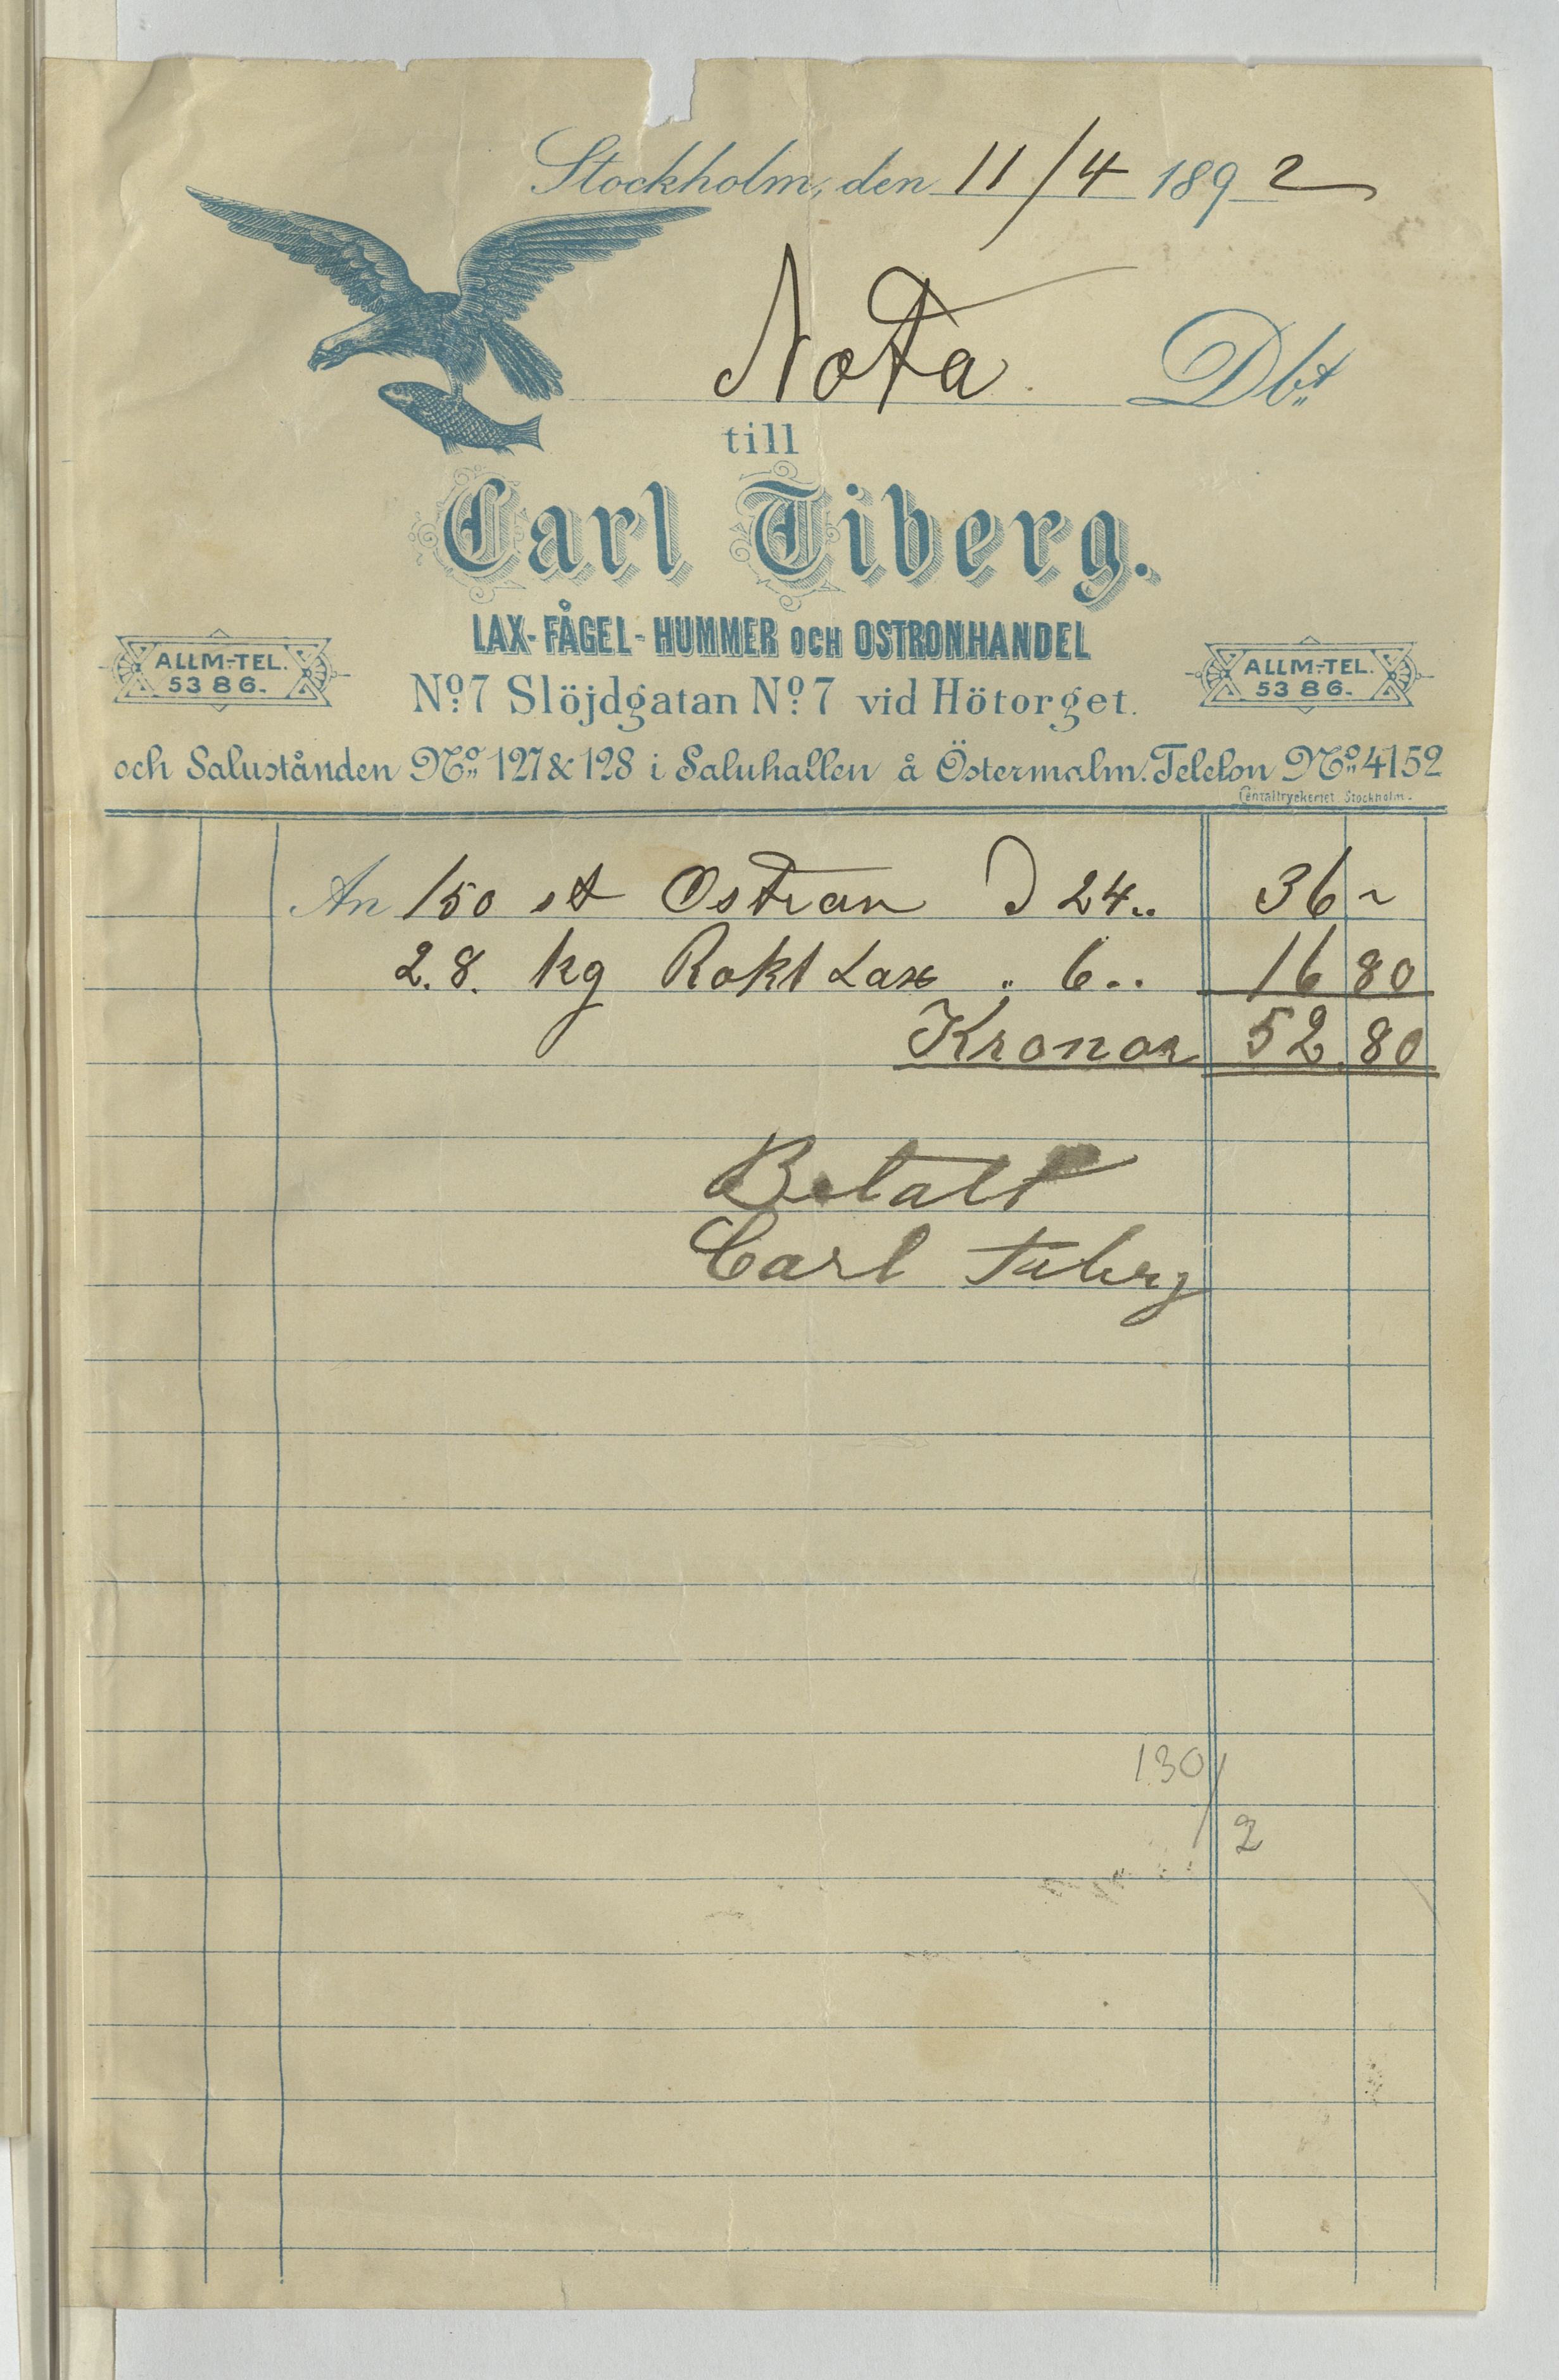 Stockholm, den 11/4 1892
Nota Dbt
till
Carl Tiberg.
LAX- FÅGEL- HUMMER OCH OSTRONHANDEL
ALLM.-TEL. 5386.
No 7 Slöjdgatan No 7 vid Hötorget.
ALLM.-TEL. 5386.
och Salustånden No 127 & 128 i Saluhallen å Östermalm. Telefon No 4152
Centraltryckeriet. Stockholm.
An 150 st Ostron 24.. 36 ~
2.8. kg Rokt Lax " 6.. 16 80
Kronor 52.80
Betalt
Carl Tiberg
130/
/2